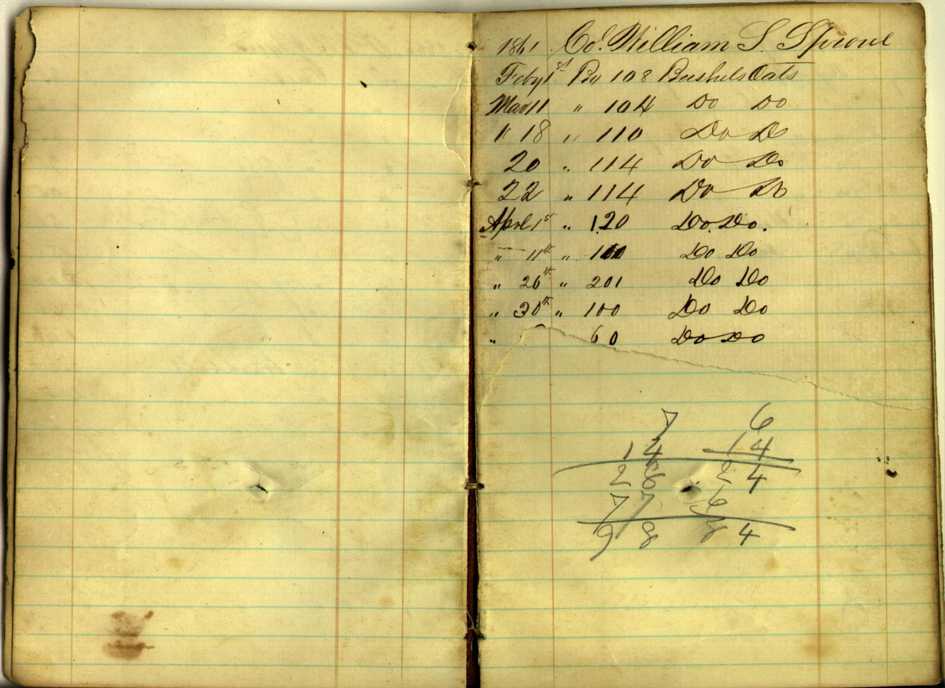 1861 Col. William S. Sproul
Feby 1st Bu 108 Bushels Oats
Mar 11 " 104 Do Do
" 18 " 110 Do Do
20 " 114 Do Do
22 " 114 Do Do
April 1st " 120 Do. Do.
" 11th " 100 Do Do
" 26th " 201 Do Do
" 30th " 100 Do Do
" 60 Do Do
7 6
14 14
28 24
7 6
98 84